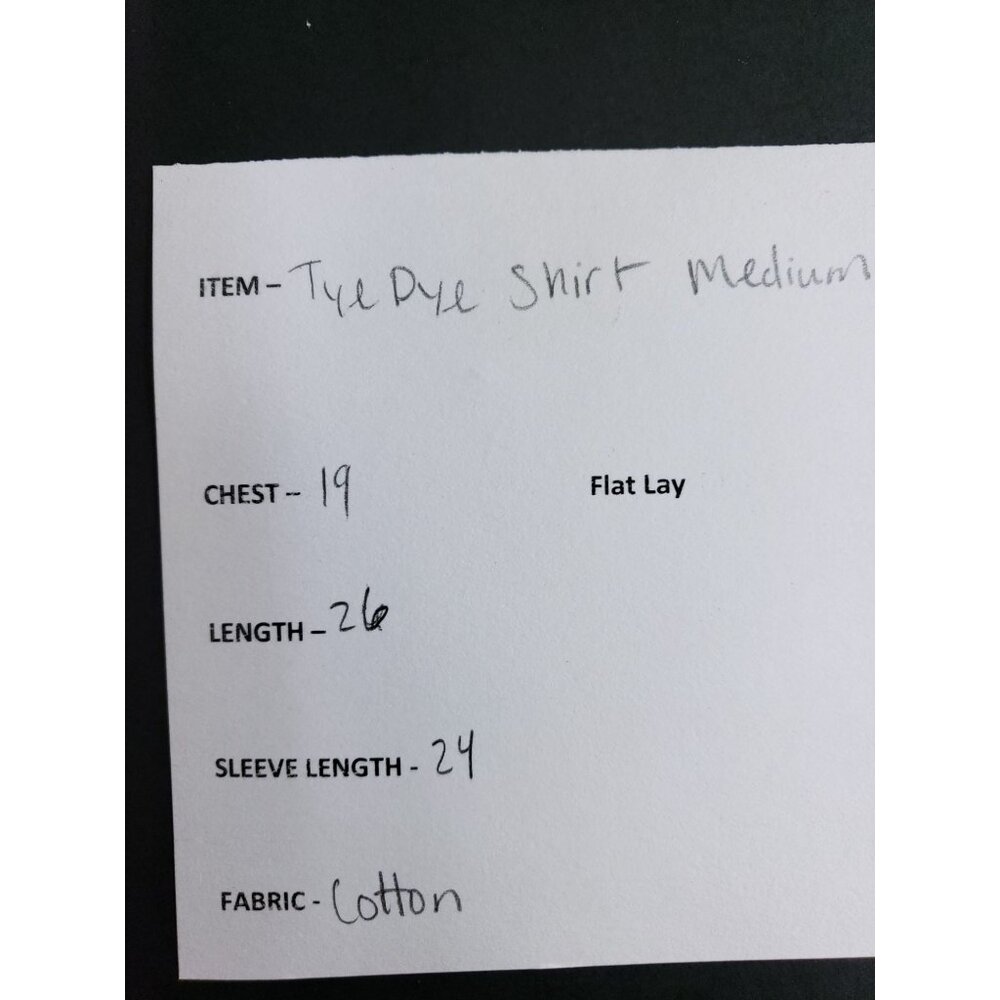 ITEM – Tye Dye Shirt Medium
CHEST – 19 Flat Lay
LENGTH – 26
SLEEVE LENGTH - 24
FABRIC - Cotton